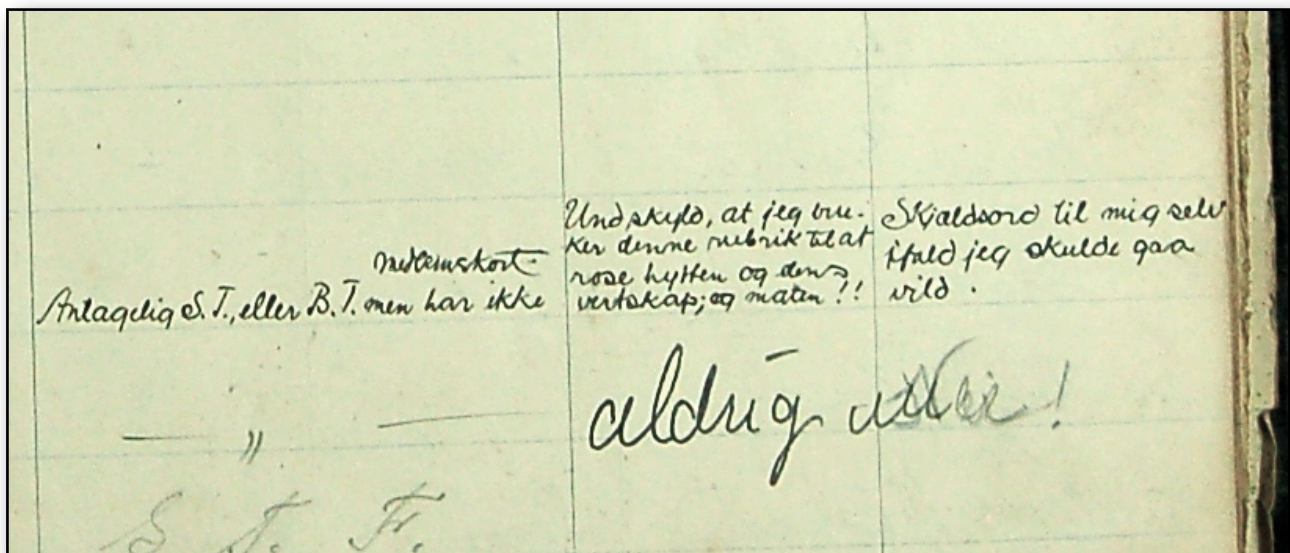 medlemskort
Antagelig S. T., eller B. T. men har ikke
Undskyld, at jeg bru-
ker denne rubrik til at
rose hytten og dens
vertskap; og maten!!
Skjældsord til mig selv
ifald jeg skulde gaa
vild.
— „ —
aldrig !
S. T. F.